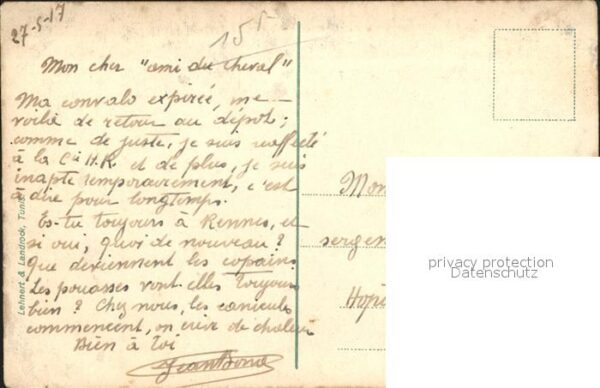 27-5-17
155
Mon cher "ami du cheval"
Ma convalo expirée, me
voilà de retour au dépôt ;
comme de juste, je suis réaffecté
à la Cie H.R. et de plus, je suis
inapte temporairement, c'est
à dire pour longtemps.
Es-tu toujours à Rennes, et
si oui, quoi de nouveau ?
Que deviennent les copains
Les pouasses vont elles toujours
bien ? Chez nous, les canicules
commencent, on crève de chaleur
Bien à toi
Lehnert & Landrock, Tunis
Mon
sergen
Hopi
privacy protection
Datenschutz